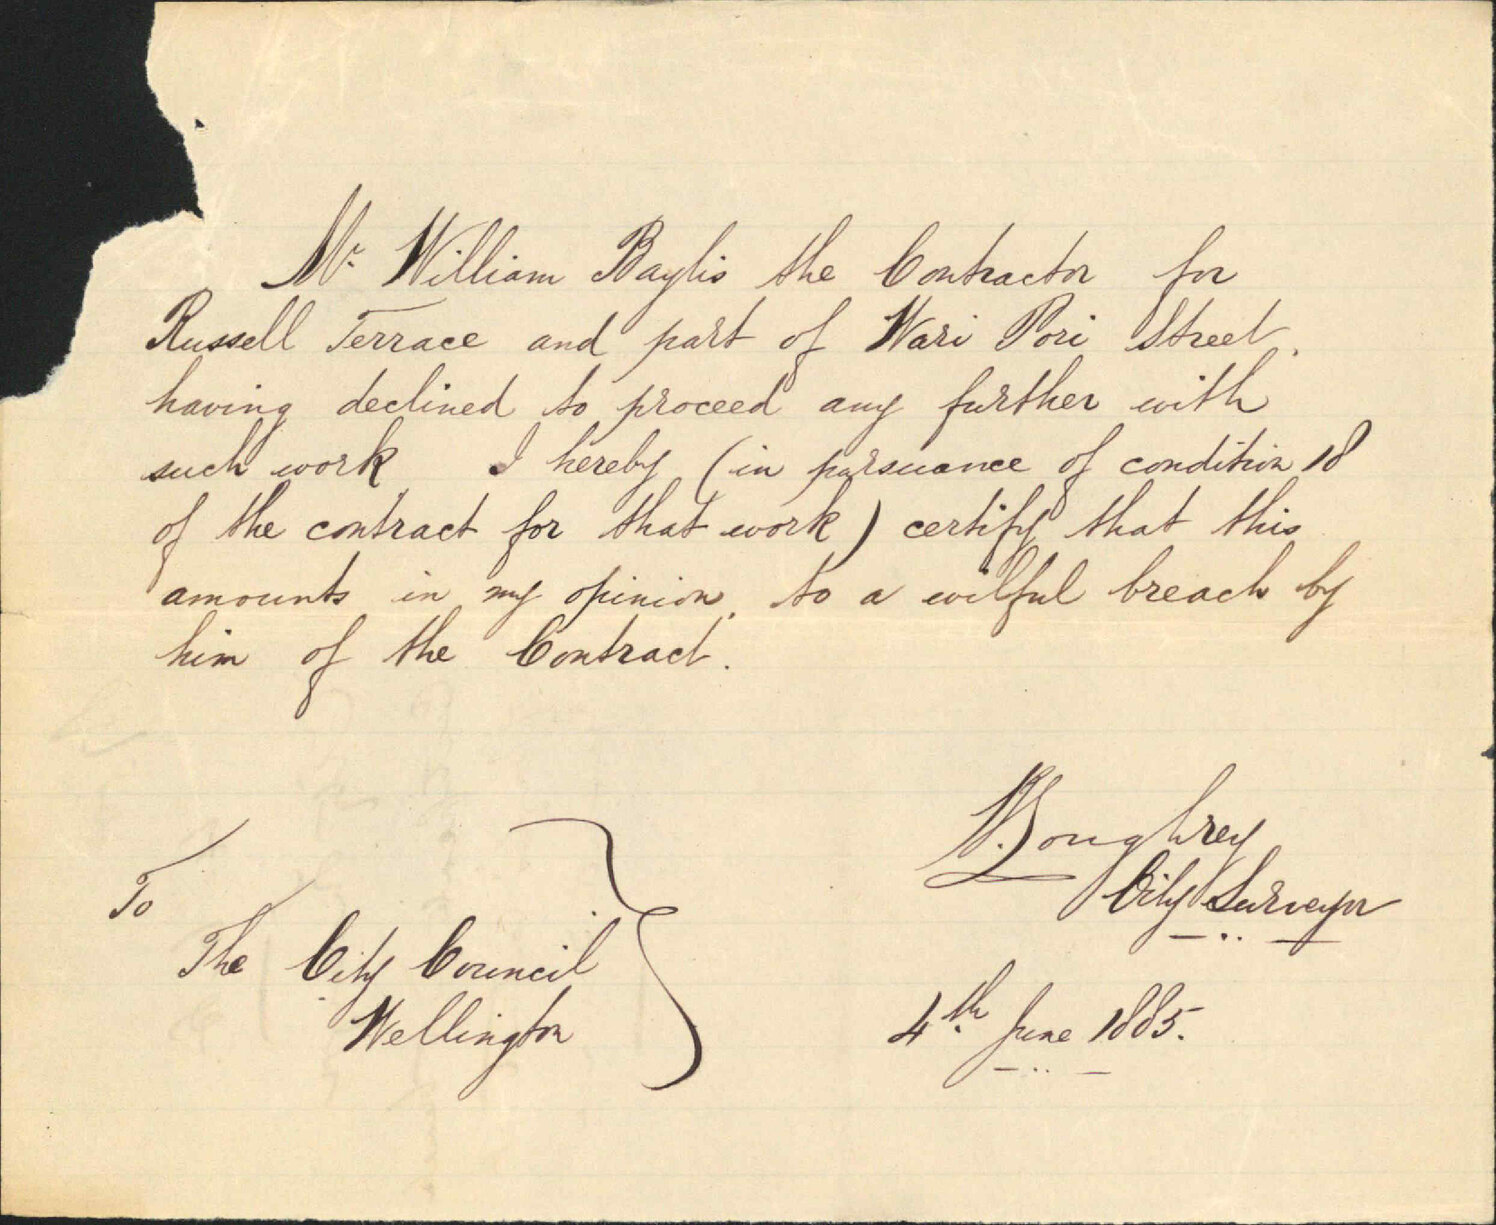 Mr. William Baylis the Contractor for
Russell Terrace and part of Wari Pori Street,
having declined to proceed any further with
such work I hereby (in pursuance of condition 18
of the contract for that work) certify that this
amounts in my opinion, to a wilful breach by
him of the Contract.
Loughrey
City Surveyor
To
The City Council
Wellington
4th June 1885.